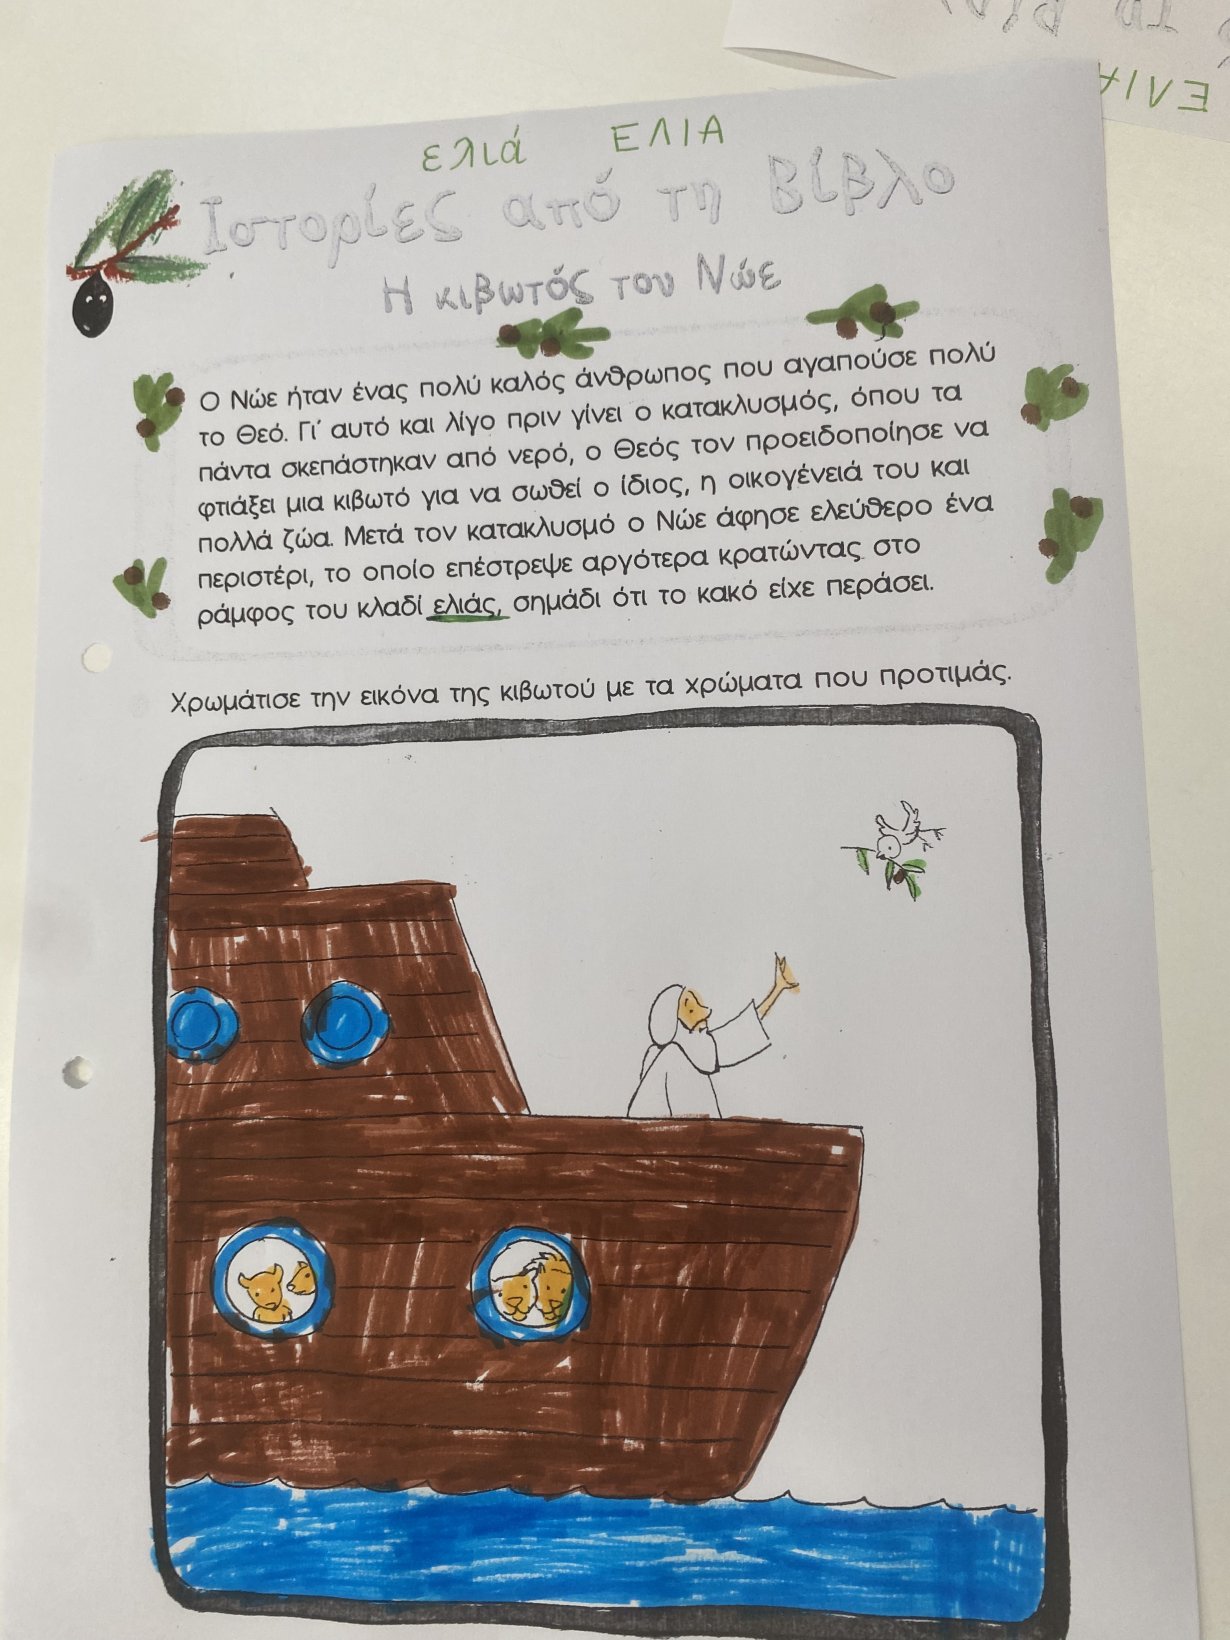 ΕΛΙΑ
ελιά ΕΛΙΑ
Ιστορίες από τη Βίβλο
Η κιβωτός του Νώε
Ο Νώε ήταν ένας πολύ καλός άνθρωπος που αγαπούσε πολύ
το Θεό. Γι' αυτό και λίγο πριν γίνει ο κατακλυσμός, όπου τα
πάντα σκεπάστηκαν από νερό, ο Θεός τον προειδοποίησε να
φτιάξει μια κιβωτό για να σωθεί ο ίδιος, η οικογένειά του και
πολλά ζώα. Μετά τον κατακλυσμό ο Νώε άφησε ελεύθερο ένα
περιστέρι, το οποίο επέστρεψε αργότερα κρατώντας στο
ράμφος του κλαδί ελιάς, σημάδι ότι το κακό είχε περάσει.
Χρωμάτισε την εικόνα της κιβωτού με τα χρώματα που προτιμάς.